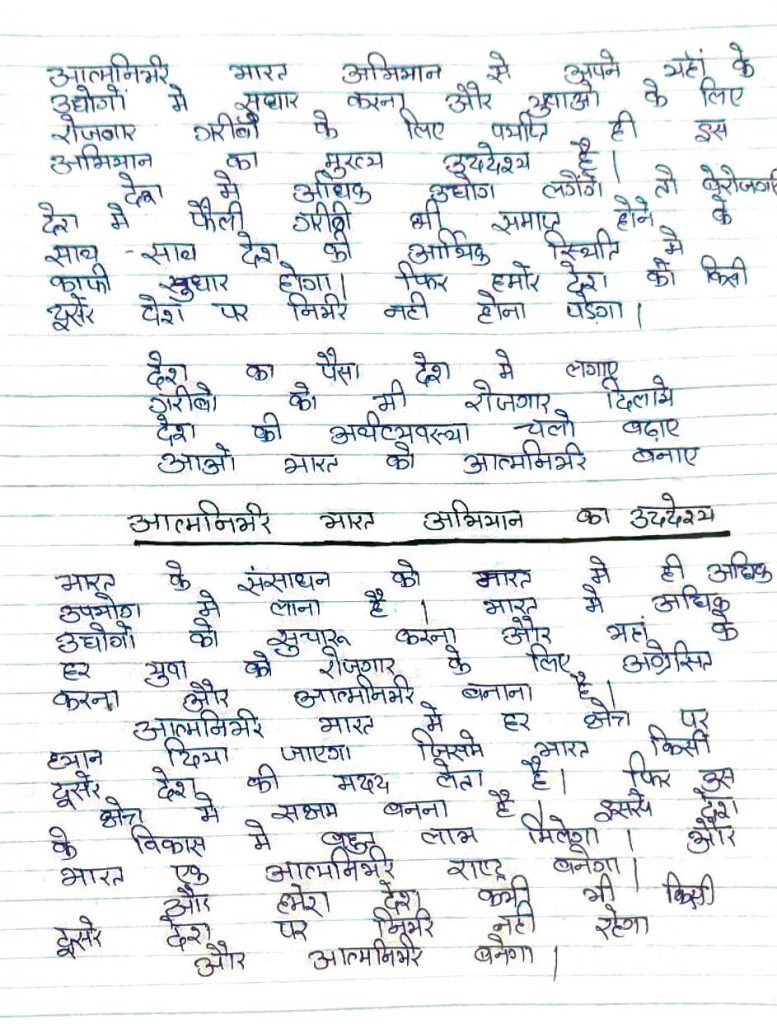 आत्मनिर्भर भारत अभियान से अपने यहां के
उद्योगों मे सुधार करना और युवाओ के लिए
रोजगार गरीबों के लिए पर्याप्त ही इस
अभियान का मुख्य उददेश्य है।
देश मे अधिक उद्योग लगेंगे तो बेरोजगारी
देश मे फैली गरीबी भी समाप्त होने के
साथ - साथ देश की आर्थिक स्थिति मे
काफी सुधार होगा। फिर हमारे देश को किसी
दूसरे देश पर निर्भर नही होना पड़ेगा।
देश का पैसा देश मे लगाए
गरीबो को भी रोजगार दिलाये
देश की अर्थव्यवस्था चलो बढ़ाए
आओ भारत को आत्मनिर्भर बनाए
आत्मनिर्भर भारत अभियान का उददेश्य
भारत के संसाधन को भारत मे ही अधिक
उपयोग मे लाना है। भारत मे अधिक
उद्योगों को सुचारू करना और यहां के
हर युवा को रोजगार के लिए अग्रेसित
करना और आत्मनिर्भर बनाना है।
आत्मनिर्भर भारत मे हर क्षेत्र पर
ध्यान दिया जाएगा जिसमे भारत किसी
दूसरे देश की मदद लेता है। फिर उस
क्षेत्र मे सक्षम बनना है। इससे देश
के विकास मे बहुत लाभ मिलेगा। और
भारत एक आत्मनिर्भर राष्ट्र बनेगा।
और हमेशा देश कभी भी किसी
दूसरे देश पर निर्भर नही रहेगा
और आत्मनिर्भर बनेगा।